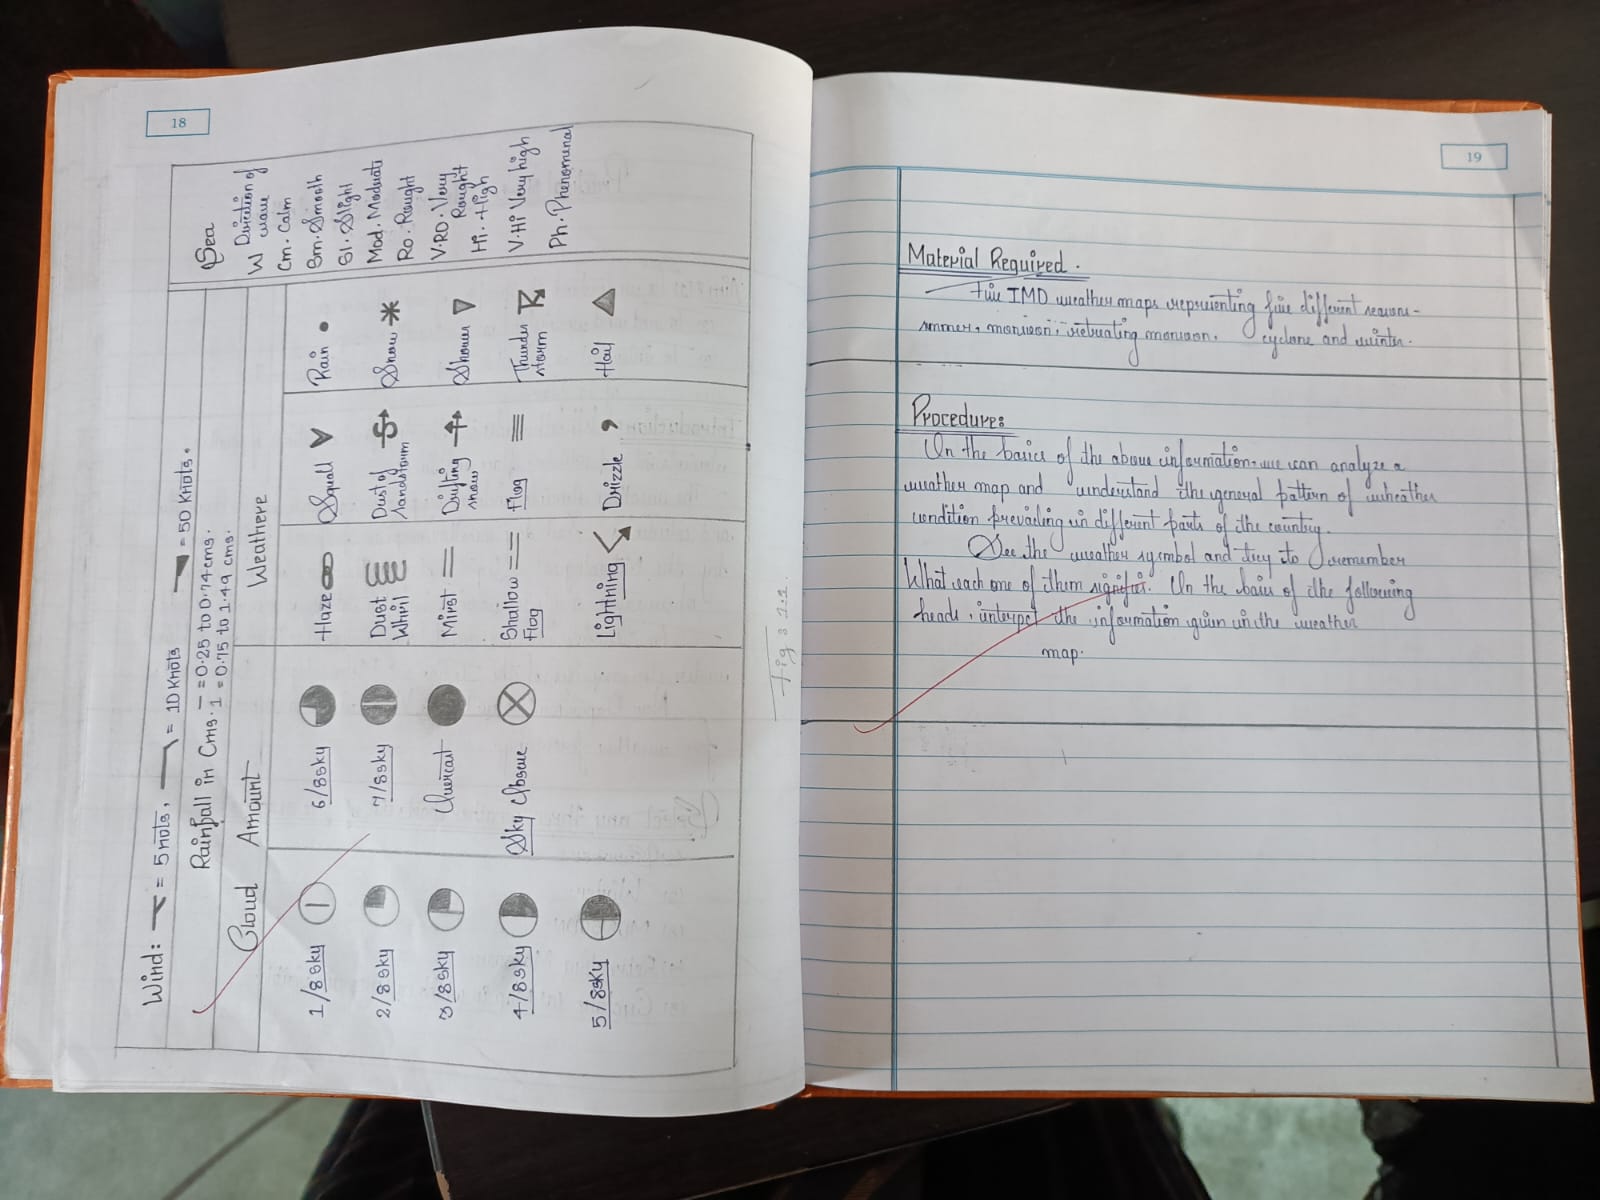 18
Wind: = 5 nots, = 10 Knots = 50 Knots.
Rainfall in Cms. – = 0.25 to 0.74 cms.
1 = 0.75 to 1.49 cms.
Cloud Amount
Weathere
Sea
1/8 sky
2/8 sky
3/8 sky
4/8 sky
5/8 sky
6/8 sky
7/8 sky
Overcast
Sky Obscue
Haze
Dust
Whirl
Mirst
Shallow
Flog
Lightning
Squall
Dust of
Sandstorm
Drifting
snow
Flog
Drizzle
Rain
Snow
Shower
Thunder
storm
Hail
W Direction of
wave
Cm. Calm
Sm. Smooth
Sl. Slight
Mod. Moduati
Ro. Rought
V.RO. Very
Rought
Hi. High
V.Hi Very high
Ph. Phenomenal
Fig : 2.1
19
Material Required.
five IMD weather maps representing five different seasons-
summer, monsoon, retreating monsoon, cyclone and winter.
Procedure:
On the basics of the above information, we can analyze a
weather map and understand the general pattern of wheather
condition prevailing in different parts of the country.
See the weather symbol and try to remember
What each one of them signifies. On the basis of the following
heads, interpet the information given in the weather
map.